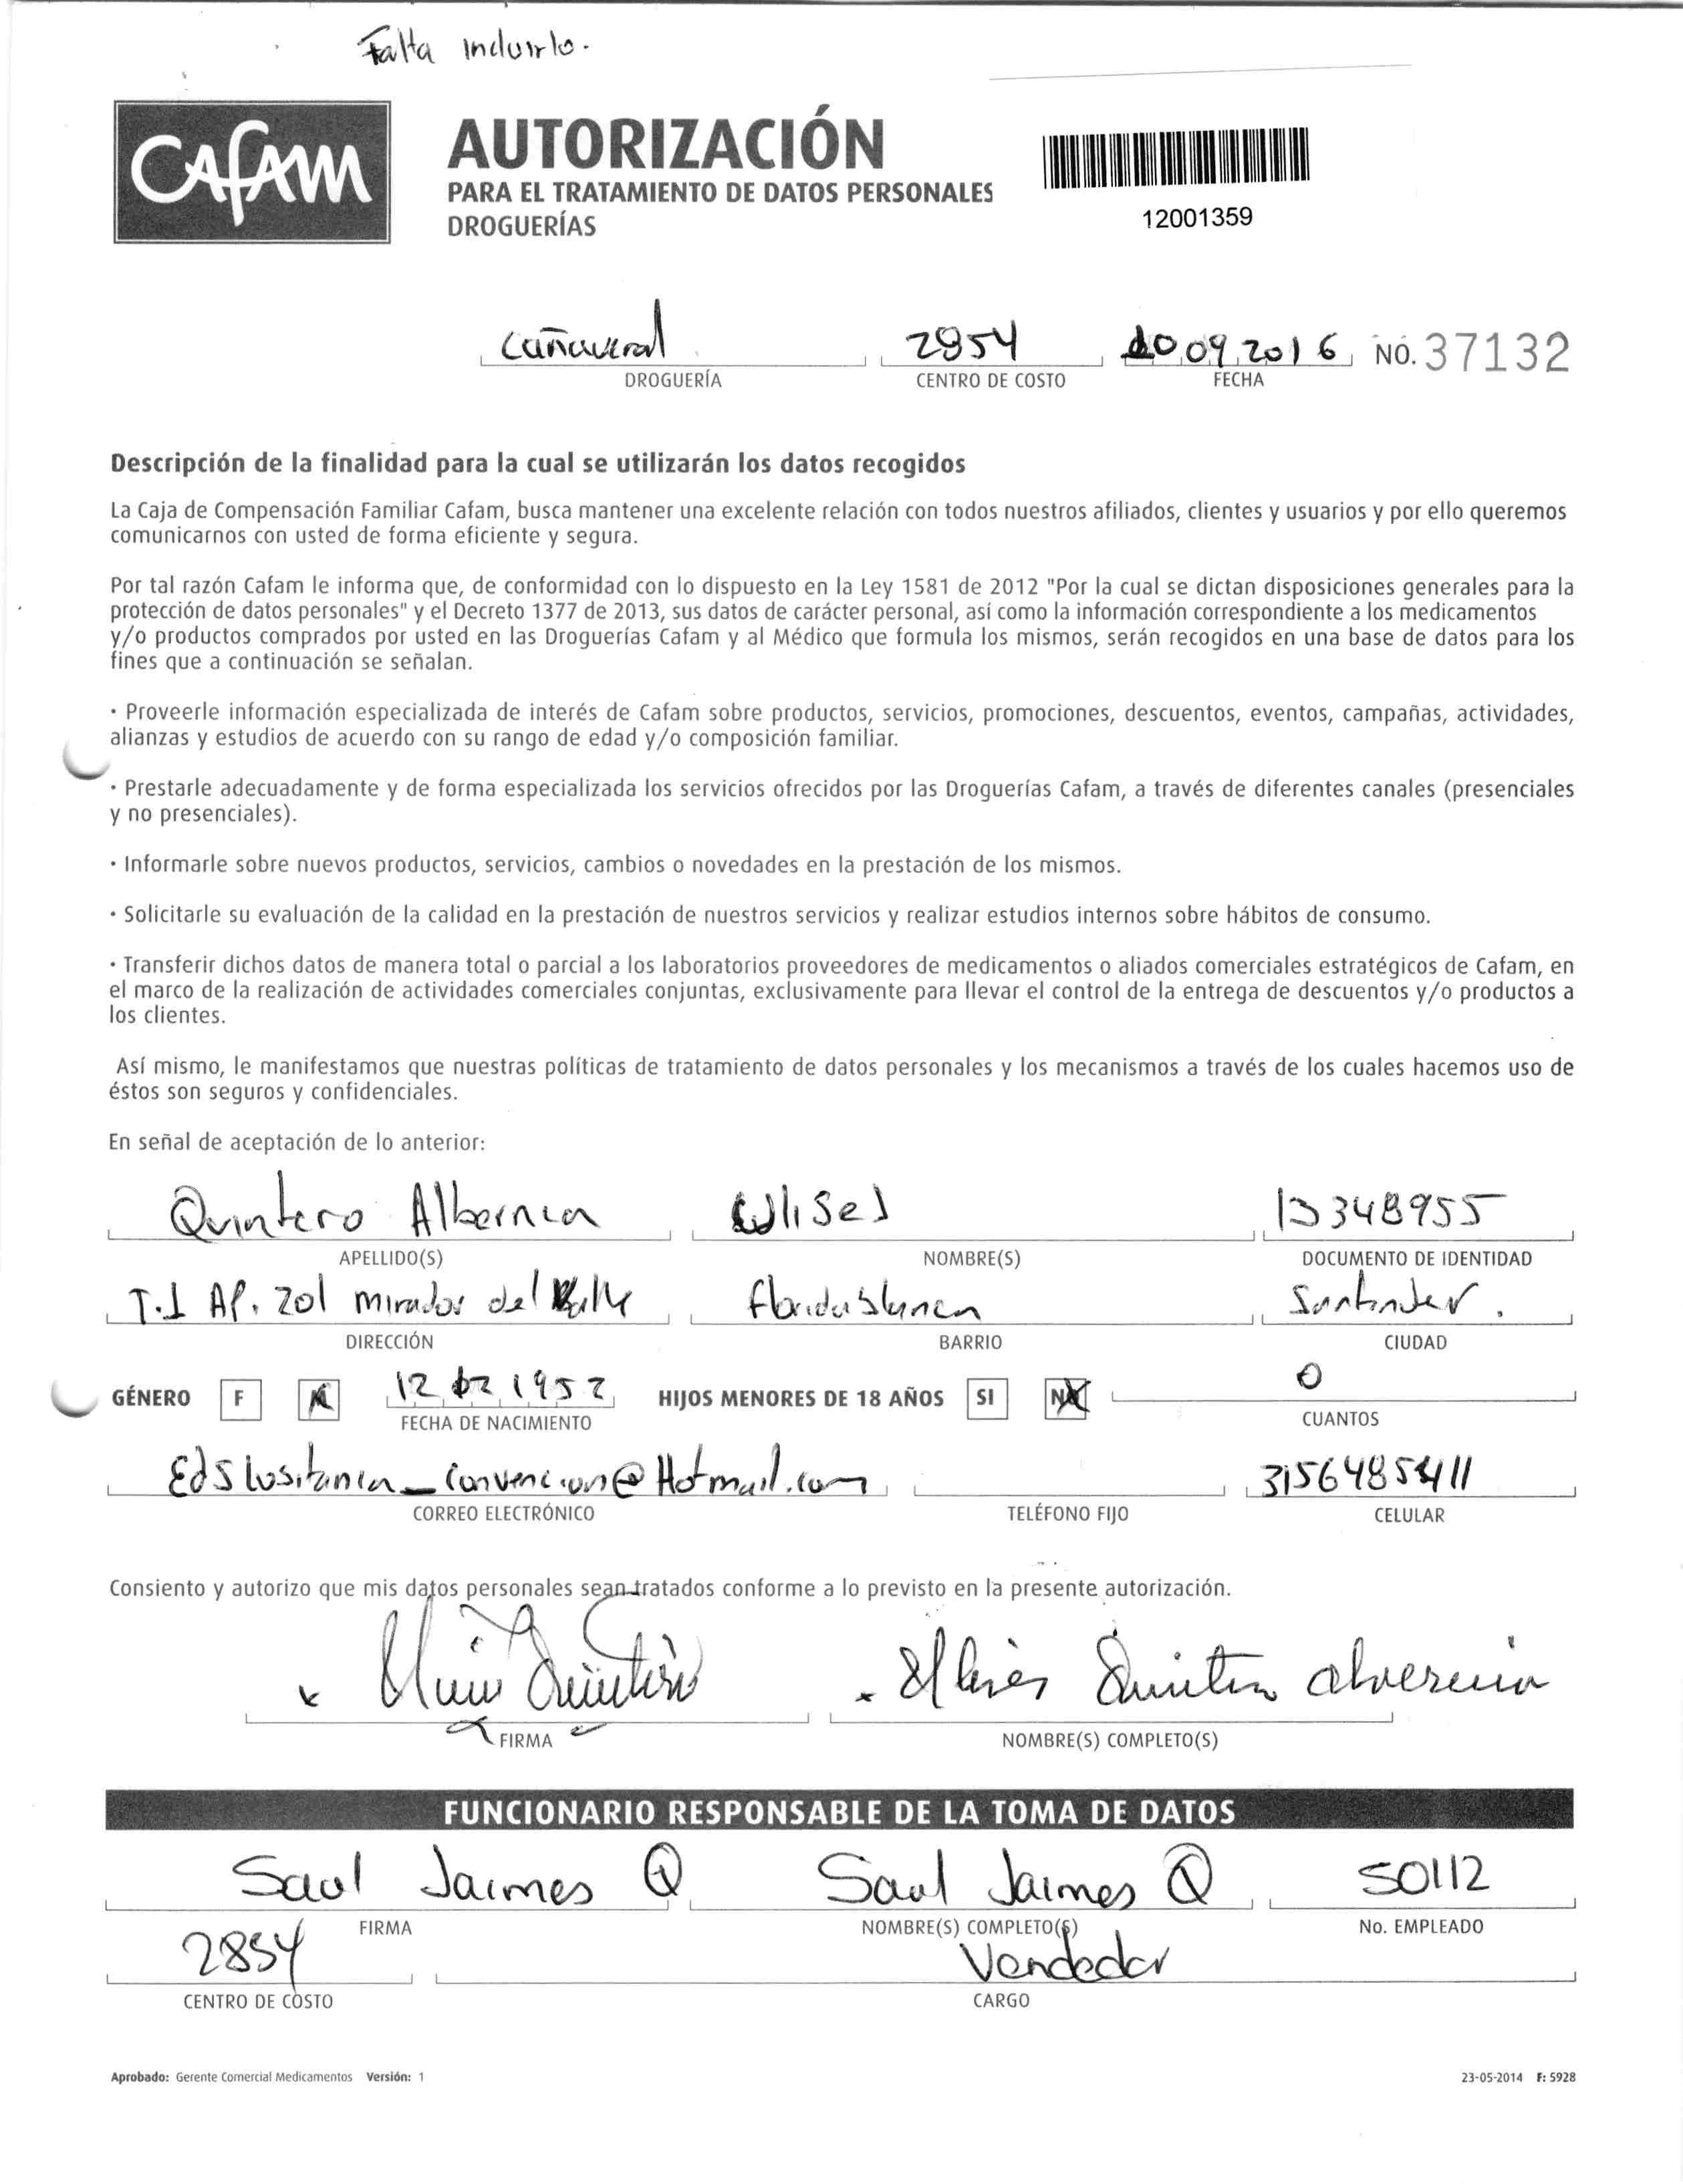 Falta incluirlo.
CAFAM
AUTORIZACIÓN
PARA EL TRATAMIENTO DE DATOS PERSONALES
DROGUERÍAS
12001359
Cañaveral 2854 10 09 2016 NO. 37132
DROGUERÍA CENTRO DE COSTO FECHA
Descripción de la finalidad para la cual se utilizarán los datos recogidos
La Caja de Compensación Familiar Cafam, busca mantener una excelente relación con todos nuestros afiliados, clientes y usuarios y por ello queremos
comunicarnos con usted de forma eficiente y segura.
Por tal razón Cafam le informa que, de conformidad con lo dispuesto en la Ley 1581 de 2012 "Por la cual se dictan disposiciones generales para la
protección de datos personales" y el Decreto 1377 de 2013, sus datos de carácter personal, así como la información correspondiente a los medicamentos
y/o productos comprados por usted en las Droguerías Cafam y al Médico que formula los mismos, serán recogidos en una base de datos para los
fines que a continuación se señalan.
· Proveerle información especializada de interés de Cafam sobre productos, servicios, promociones, descuentos, eventos, campañas, actividades,
alianzas y estudios de acuerdo con su rango de edad y/o composición familiar.
· Prestarle adecuadamente y de forma especializada los servicios ofrecidos por las Droguerías Cafam, a través de diferentes canales (presenciales
y no presenciales).
· Informarle sobre nuevos productos, servicios, cambios o novedades en la prestación de los mismos.
· Solicitarle su evaluación de la calidad en la prestación de nuestros servicios y realizar estudios internos sobre hábitos de consumo.
· Transferir dichos datos de manera total o parcial a los laboratorios proveedores de medicamentos o aliados comerciales estratégicos de Cafam, en
el marco de la realización de actividades comerciales conjuntas, exclusivamente para llevar el control de la entrega de descuentos y/o productos a
los clientes.
Así mismo, le manifestamos que nuestras políticas de tratamiento de datos personales y los mecanismos a través de los cuales hacemos uso de
éstos son seguros y confidenciales.
En señal de aceptación de lo anterior:
Quintero Albernia 13348955
APELLIDO(S) NOMBRE(S) DOCUMENTO DE IDENTIDAD
T.1 AP. 201 Mirador del Valle Floridablanca Santander.
DIRECCIÓN BARRIO CIUDAD
GÉNERO F M 12 02 1952 HIJOS MENORES DE 18 AÑOS SI NO 0
FECHA DE NACIMIENTO CUANTOS
EdSlusitania_Convencion@Hotmail.com 3156485411
CORREO ELECTRÓNICO TELÉFONO FIJO CELULAR
Consiento y autorizo que mis datos personales sean tratados conforme a lo previsto en la presente autorización.
Quintero
FIRMA NOMBRE(S) COMPLETO(S)
FUNCIONARIO RESPONSABLE DE LA TOMA DE DATOS
Saul Jaimes Q Saul Jaimes Q 50112
FIRMA NOMBRE(S) COMPLETO(S) No. EMPLEADO
2854 Vendedor
CENTRO DE COSTO CARGO
Aprobado: Gerente Comercial Medicamentos Versión: 1 23-05-2014 F: 5928